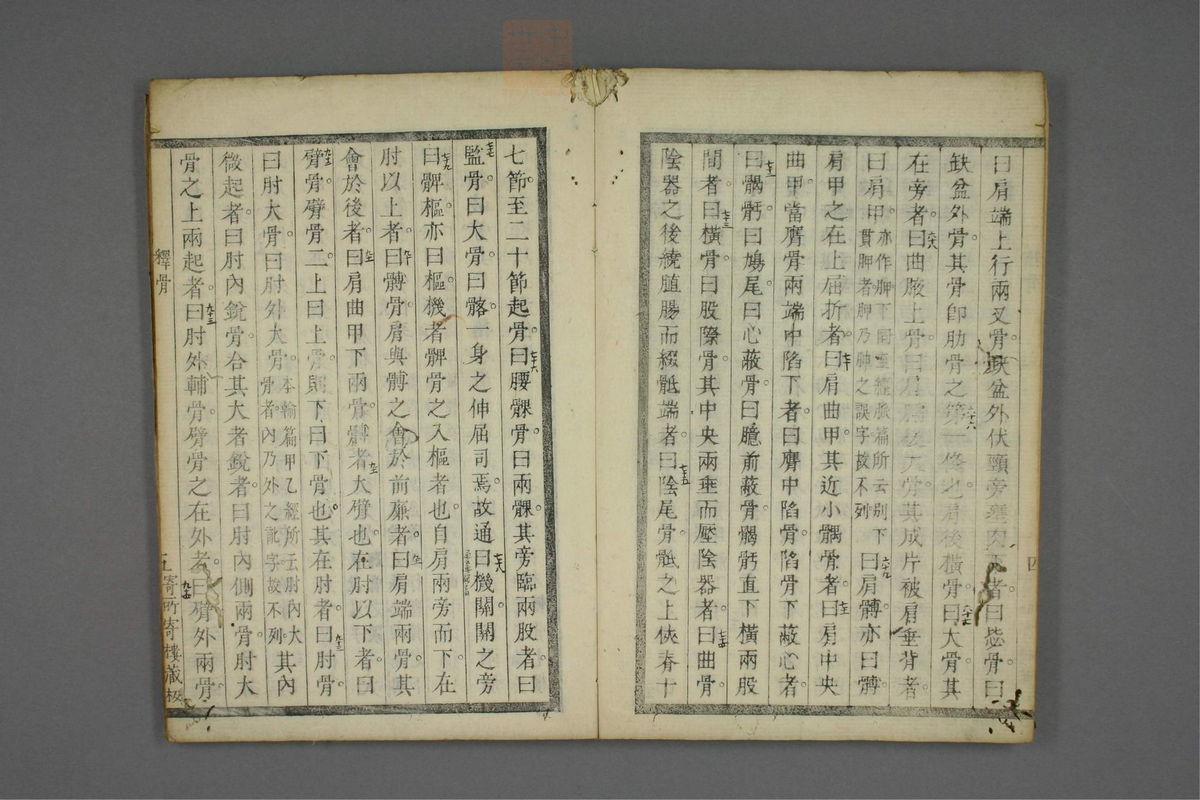 曰肩端上行兩叉骨缺盆外伏頸旁壅肉下者曰巫骨曰
缺盆外骨其骨卽肋骨之第一條也肩後橫骨曰大骨其
在旁者曰曲腋上骨曰肩後大骨其成片被肩垂背者
曰肩甲亦作胛下同至經脈篇所云別下貫胛者胛乃胂之誤字故不列曰肩髆亦曰髆
肩甲之在上屈折者曰肩曲甲其近小髃骨者曰肩中央
曲甲當膺骨兩端中陷下者曰膺中陷骨陷骨下蔽心者
曰𩩲骬曰鳩尾曰心蔽骨曰臆前蔽骨𩩲骬直下橫兩股
間者曰橫骨曰股際骨其中央兩垂而壓陰器者曰曲骨
陰器之後繞䐁腸而綴骶端者曰陰尾骨骶之上俠脊十
七節至二十節起骨曰腰髁骨曰兩髁其旁臨兩股者曰
監骨曰大骨曰髂一身之伸屈司焉故通曰機關關之旁
曰髀樞亦曰樞機者髀骨之入樞者也自肩兩旁而下在
肘以上者曰髆骨肩與髆之會於前廉者曰肩端兩骨其
會於後者曰肩曲甲下兩骨髆者大臂也在肘以下者曰
臂骨臂骨二上曰上骨下曰下骨也其在肘者曰肘骨
曰肘大骨曰肘外大骨本輸篇甲乙經所云肘內大骨者內乃外之訛字故不列其內
微起者曰肘內銳骨合其大者銳者曰肘內側兩骨肘大
骨之上兩起者曰肘外輔骨臂骨之在外者曰臂外兩骨
釋骨
五
寄所寄樓藏板
四